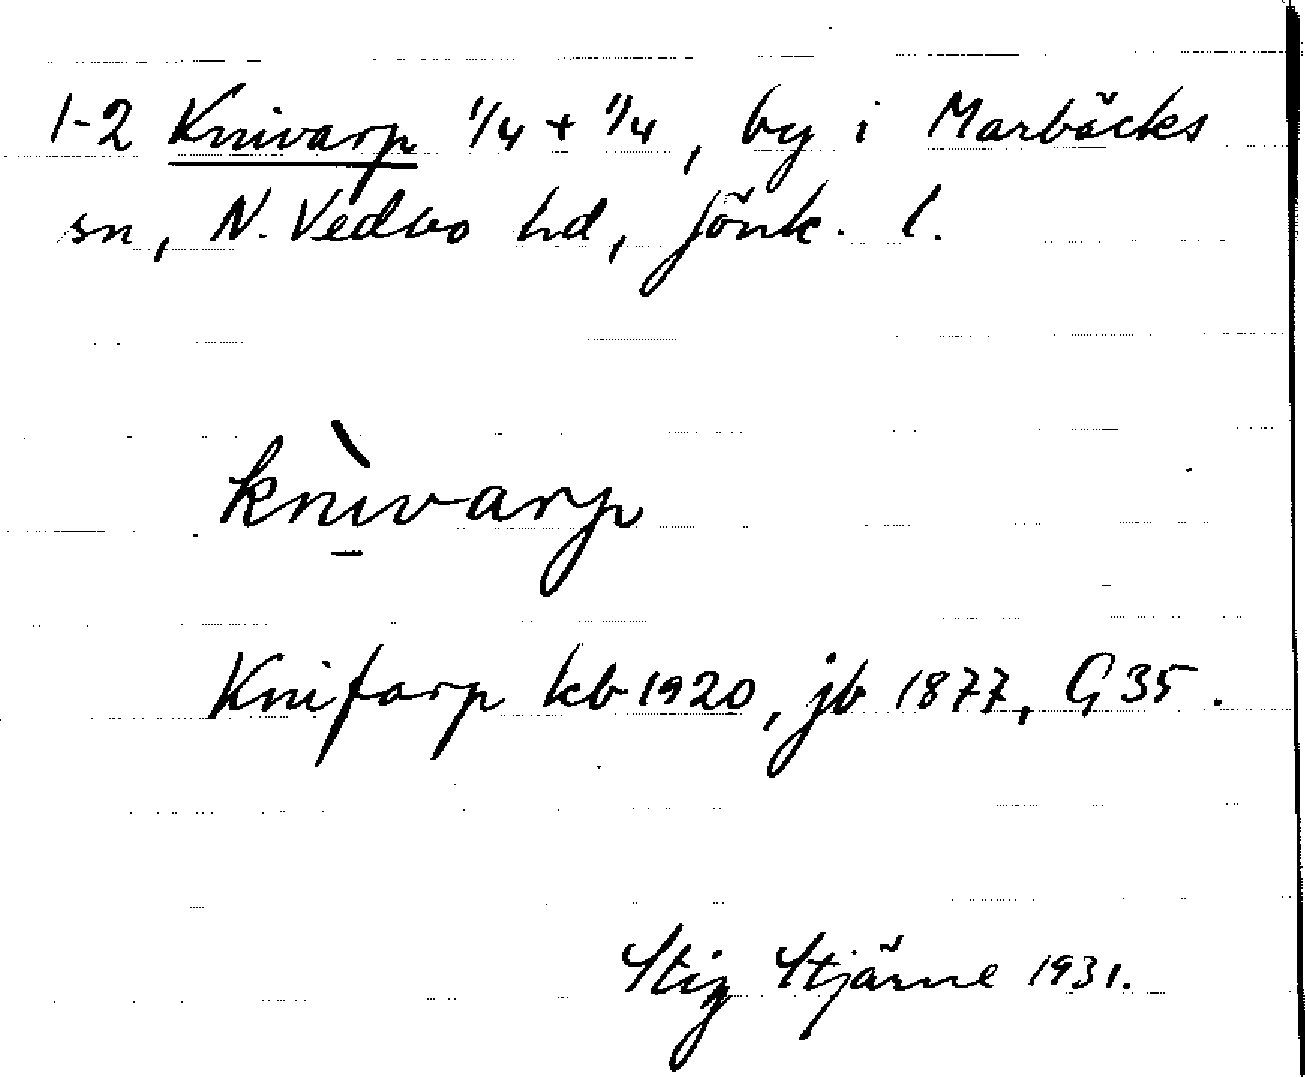 1-2 Knivarp 1/4 + 1/4, by i Marbäcks
sn, N. Vedbo hd, Jönk. l.
knìvarp
Knifarp kb 1920, jb 1877, G 35.
Stig Stjärne 1931.